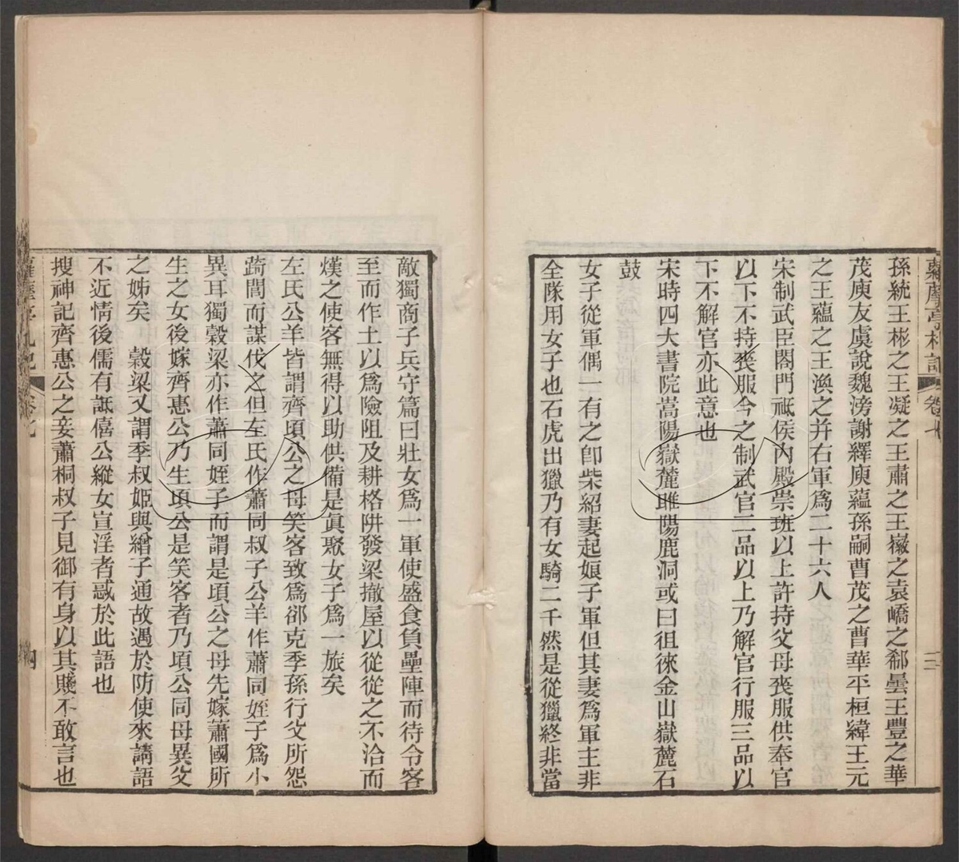 蘿藦亭札記 卷七 三
孫統王彬之王凝之王肅之王徽之袁嶠之郗曇王豐之華
茂庾友虞說魏滂謝繹庾蘊孫嗣曹茂之曹華平桓緯王元
之王蘊之王渙之并右軍爲二十六人
宋制武臣閤門祗侯內殿崇班以上許持父母喪服供奉官
以下不持喪服今之制武官二品以上乃解官行服三品以
下不解官亦此意也
宋時四大書院嵩陽嶽麓睢陽鹿洞或曰徂徠金山嶽麓石
鼓
女子從軍偶一有之卽柴紹妻起娘子軍但其妻爲軍主非
全隊用女子也石虎出獵乃有女騎二千然是從獵終非當
敵獨商子兵守篇曰壯女爲一軍使盛食負壘陣而待令客
至而作土以爲險阻及耕格阱發梁撤屋以從從之不洽而
熯之使客無得以助供備是眞聚女子爲一旅矣
左氏公羊皆謂齊頃公之母笑客致爲郤克季孫行父所怨
踦閭而謀伐之但左氏作蕭同叔子公羊作蕭同姪子爲小
異耳獨穀梁亦作蕭同姪子而謂是頃公之母先嫁蕭國所
生之女後嫁齊惠公乃生頃公是笑客者乃頃公同母異父
之姊矣　穀梁又謂季叔姬與繒子通故遇於防使來請語
不近情後儒有詆僖公縱女宣淫者惑於此語也
搜神記齊惠公之妾蕭桐叔子見御有身以其賤不敢言也
蘿藦亭札記 卷七 四